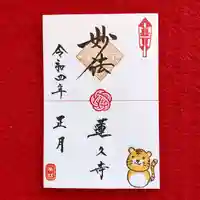 妙法
令和四年
正月
蓮久寺